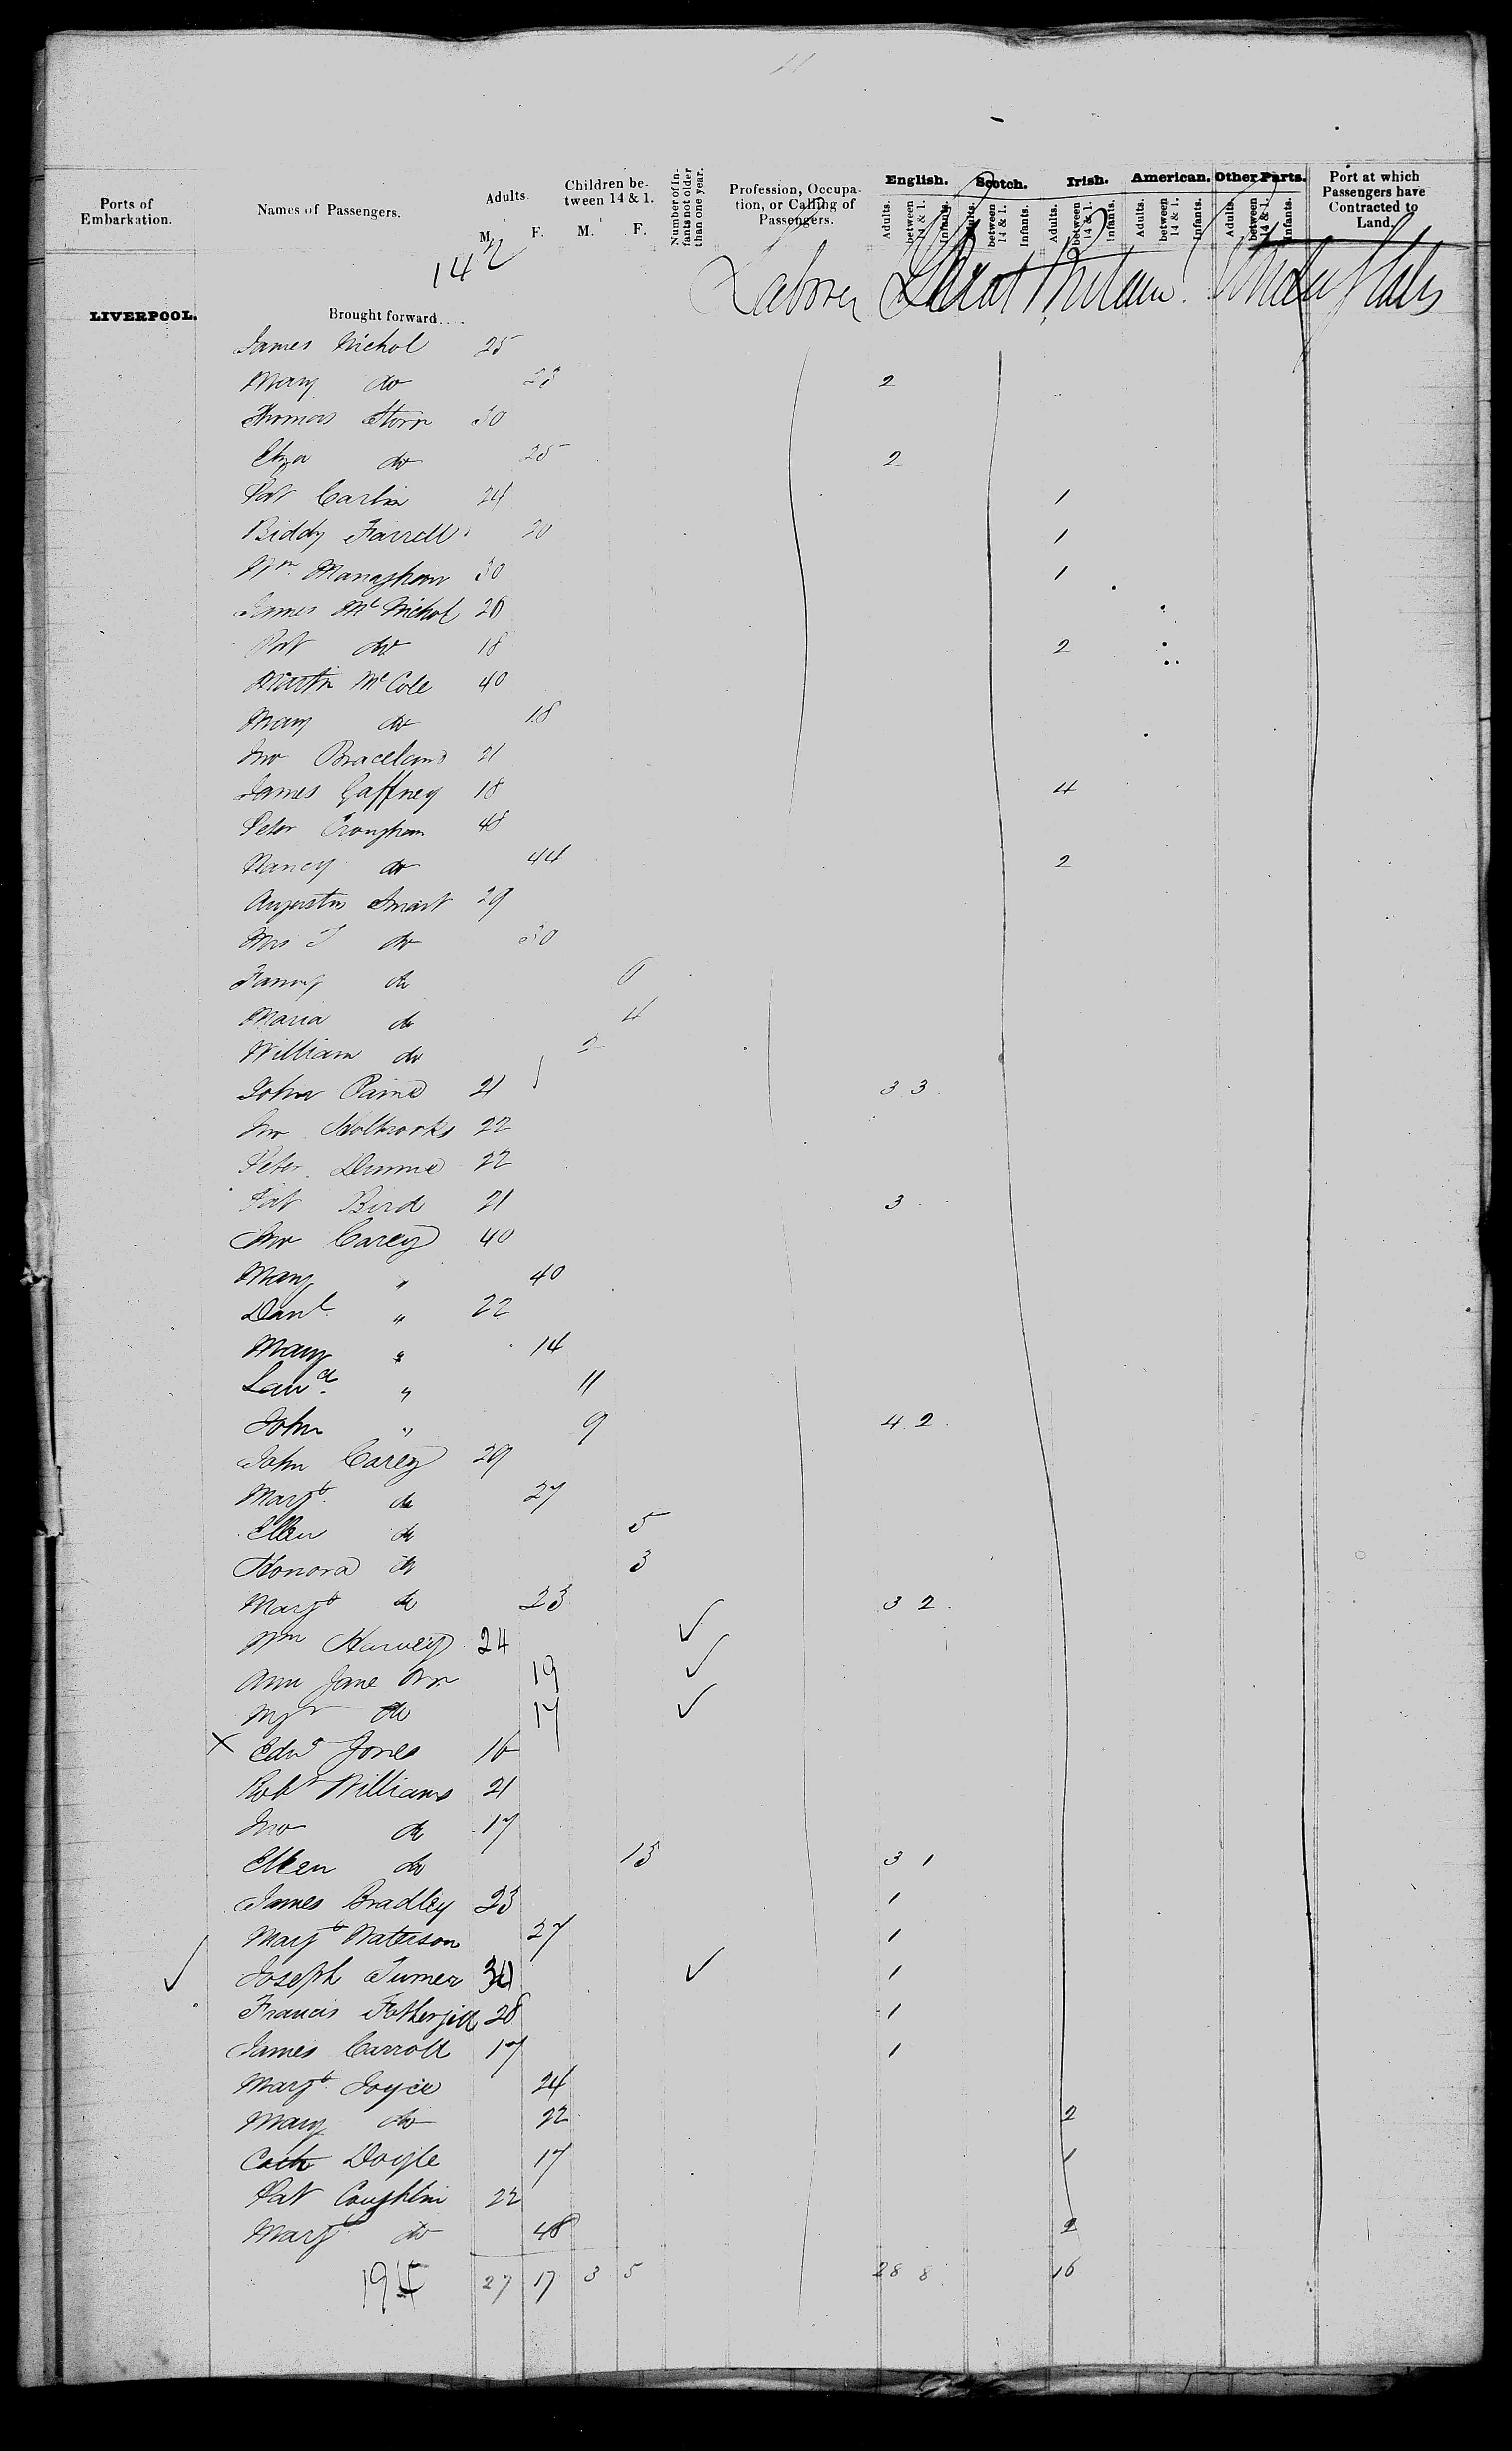 Ports of Embarkation. Names of Passengers. Adults. M. F. Children between 14 & 1. M. F. Number of Infants not older than one year. Profession, Occupation, or Calling of Passengers. English. Adults. between 14 & 1. Infants. Scotch. Adults. between 14 & 1. Infants. Irish. Adults. between 14 & 1. Infants. American. Adults. between 14 & 1. Infants. Other Parts. Adults. between 14 & 1. Infants. Port at which Passengers have Contracted to Land.
142
Laborer Great Britain United States
LIVERPOOL. Brought forward....
James Nichol 25
Mary do 23 2
Thomas Storr 30
Eliza do 25 2
Pat Carlin 24 1
Biddy Farrell 20 1
Wm Managhan 30 1
James McNichol 26
Pat do 18 2
Martin McCole 40
Mary do 18
Jno Braceland 21
James Gaffney 18 4
Peter Croughan 48
Nancy do 44 2
Augustus Smart 29
Mrs do 30
Fanny do 6
Maria do 4
William do 2
John Paine 21 3 3
Jno Holbrooks 22
Peter Dunne 22
Pat Bird 21 3
Jno Carey 40
Mary " 40
Danl " 22
Mary " 14
" 11
John " 9 4 2
John Carey 29
Margt do 27
Ellen do 5
Honora do 3
Margt do 23 3 2
Wm Harvey 24
Ann Jane Orr 19
Mgt do 17
Edwd Jones 16
Robt Williams 21
Jno do 17
Ellen do 13 3 1
James Bradley 23 1
Margt Waterson 27 1
Joseph Turner 1
Francis Fothergill 28 1
James Carroll 17 1
Margt Joyce 24
Mary do 22 2
Cath Doyle 17 1
Pat Coughlin 22
Margt do 48 2
27 17 3 5 28 8 16